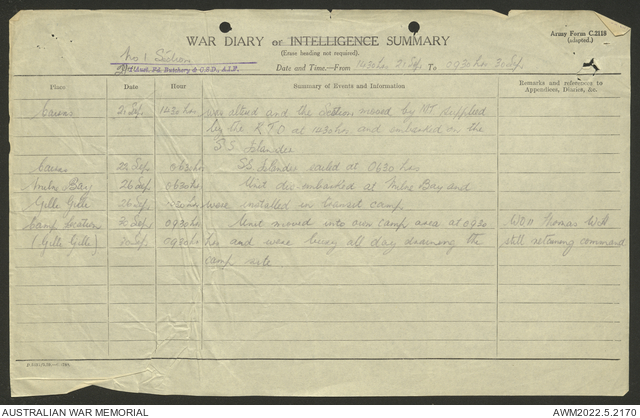 Army Form C.2118
(adapted.)
WAR DIARY or INTELLIGENCE SUMMARY
(Erase heading not required).
No 1 Section
Aust. Fd. Butchery & C.S.D., A.I.F.
Date and Time.—From 1430 hr. 21 Sep. To 0930 hr 30 Sep.
Place Date Hour Summary of Events and Information Remarks and references to
Appendices, Diaries, &c.
Cairns 21 Sep. 1430 hrs was altered and the Section moved by M.T. supplied
by the R.T.O. at 1430 hrs and embarked on the
S.S. Islander
Cairns 22 Sep. 0630 hr S.S. Islander sailed at 0630 hrs
Milne Bay 26 Sep. 0630 hr. Unit dis-embarked at Milne Bay and
Gilli Gilli 26 Sep. were installed in transit camp.
Camp location Sep. 0930 hr. Unit moved into own camp area at 0930 WO II Thomas
(Gilli Gilli) 30 Sep. 0930 hr hrs and were busy all day draining the still retaining command
camp site.
AUSTRALIAN WAR MEMORIAL
AWM2022.5.2170